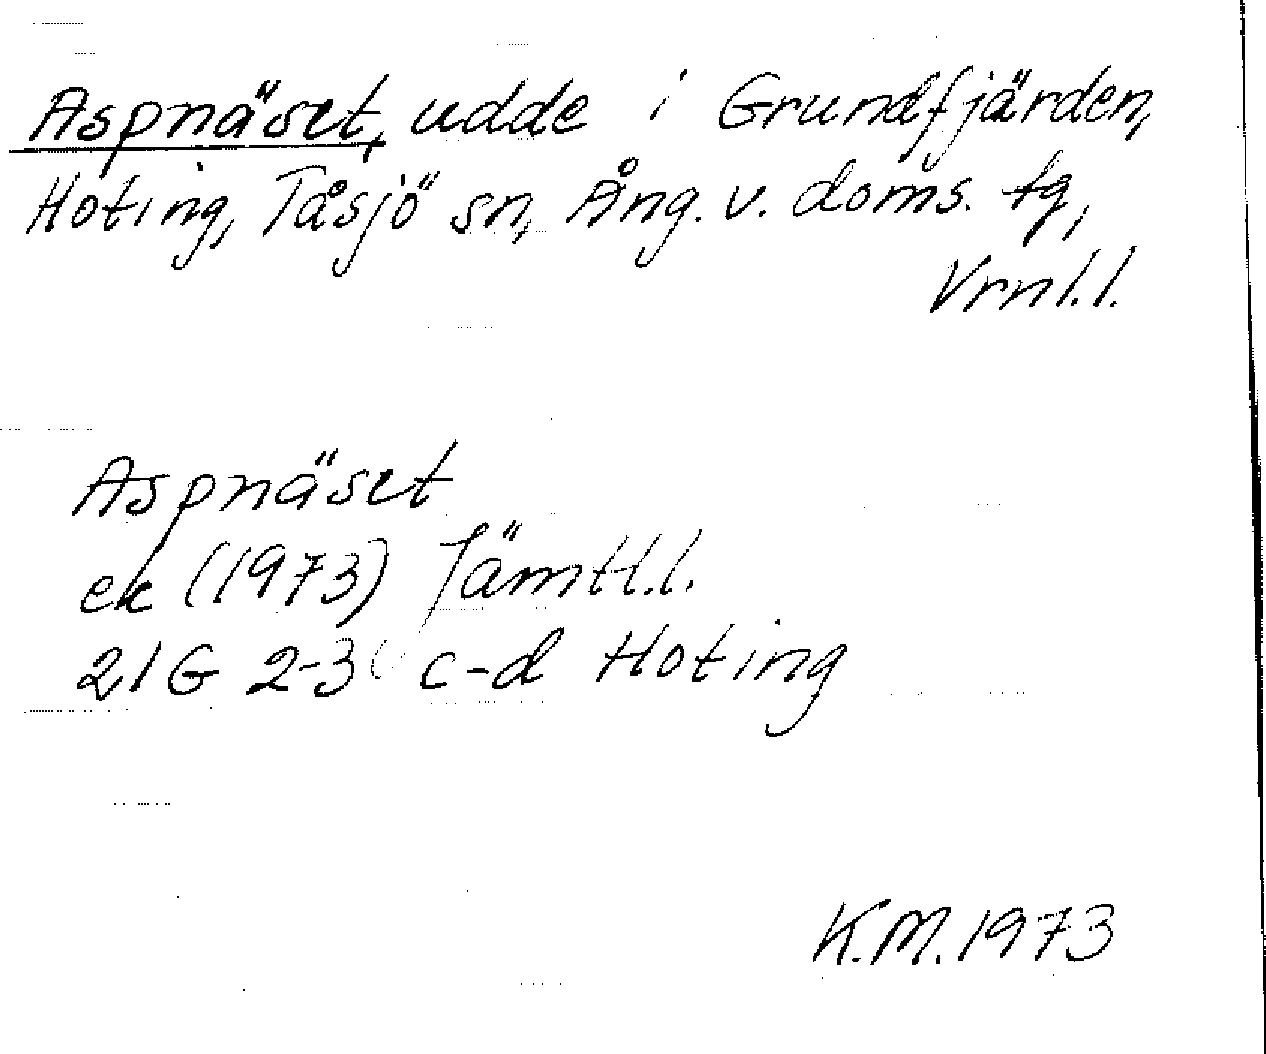 Aspnäset, udde i Grundfjärden,
Hoting, Tåsjö sn, Ång. v. doms. tg,
Vrnl.l.
Aspnäset
ek (1973) Jämtl.l.
21G 2-3 c-d Hoting
K.M. 1973